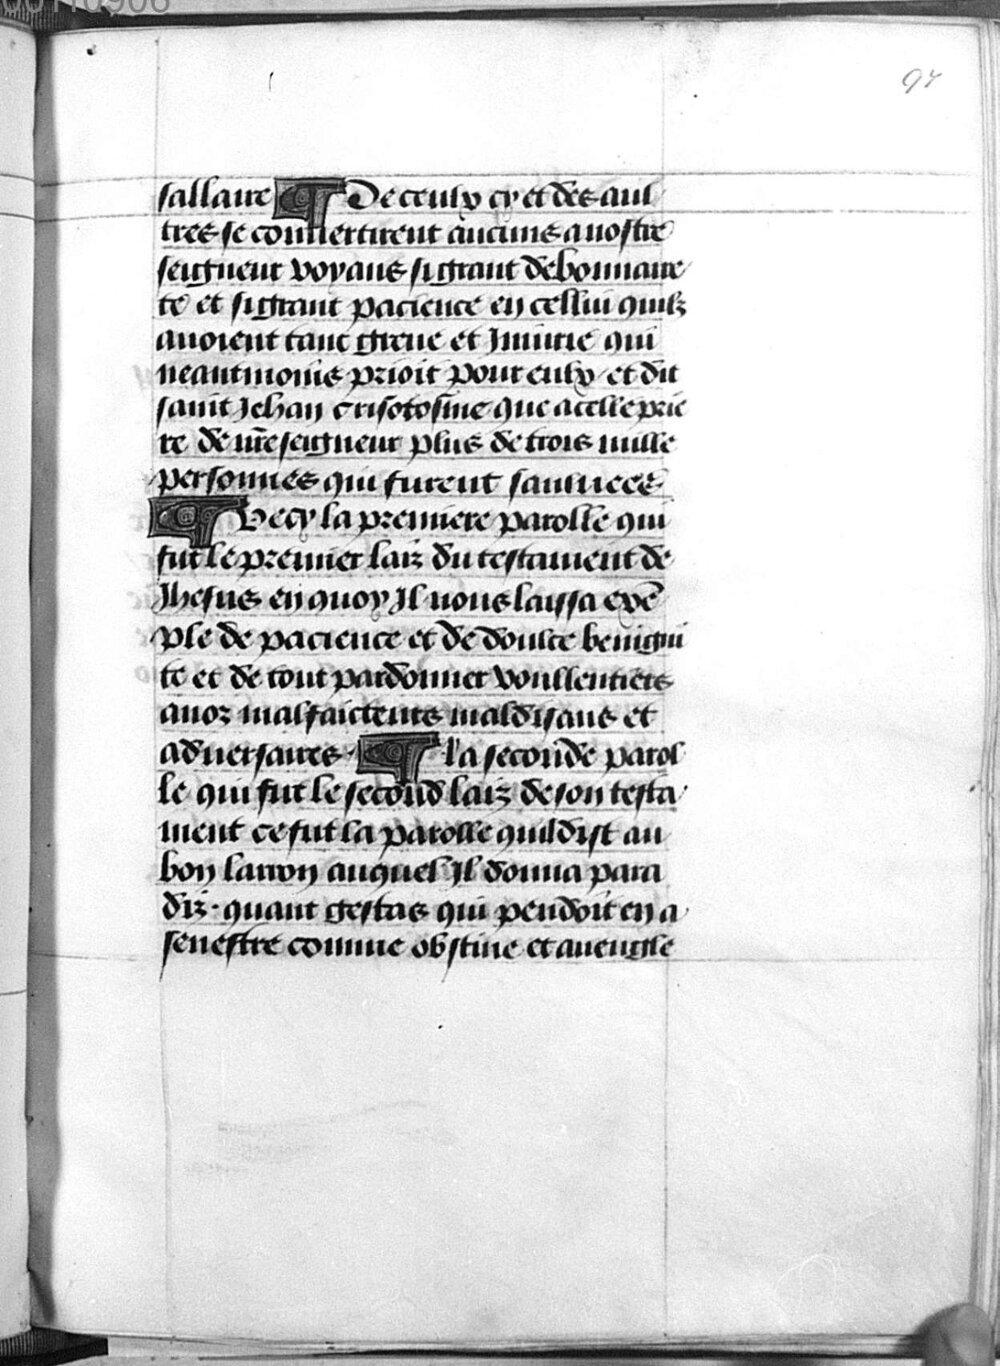 00110906
97
sallaire ¶ De ceulx cy et des aul
tres se convertirent aucuns a nostre
seigneur voyans si grant debonnaire
te et si grant pacience en cellui quilz
avoient tant greve et Iniurie qui
neantmoins prioit pour eulx / et dit
saint Jehan crisotosme que a celle prie
re de nr̃e seigneur plus de trois mille
personnes qui furent sauluees
¶ Vecy la premiere parolle qui
fut le premier laiz du testament de
Jhesus en quoy Il nous laissa exẽ
ple de pacience et de doulce benigni
te et de tout pardonner voullentiers
a noz malfaicteurs maldisans et
adversaires · ¶ La seconde parol
le qui fut le second laiz de son testa
ment ce fut la parolle quil dist au
bon larron auquel Il donna para
diz · quant gestas qui pendoit en a
senestre comme obstine et aveugle